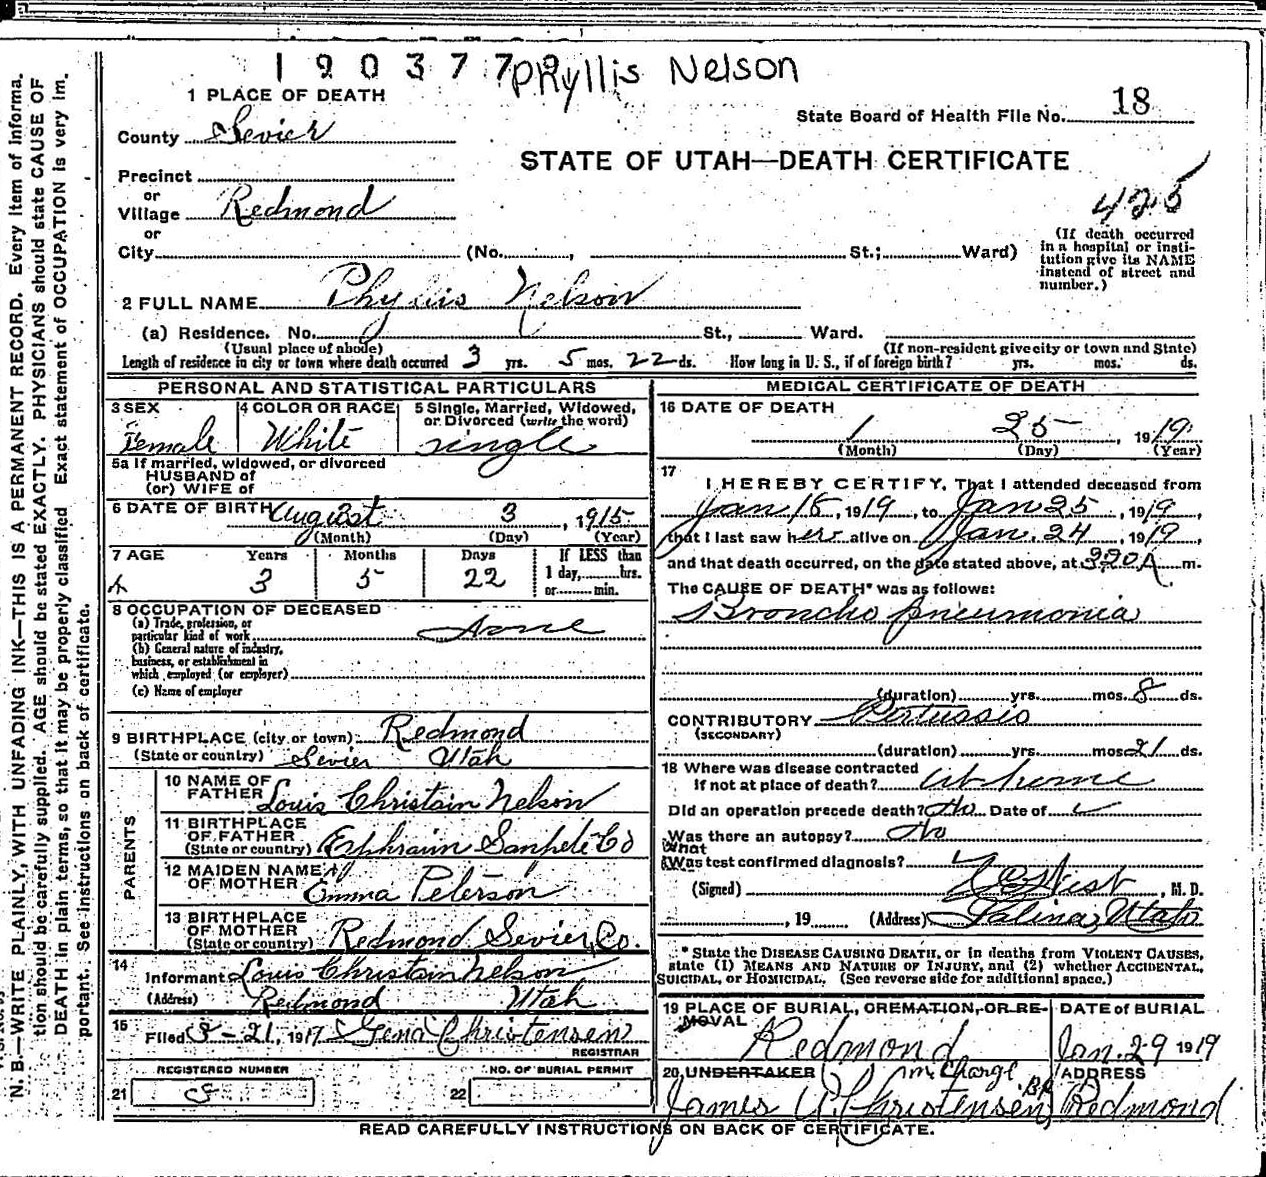 190377
Phyllis Nelson
1 PLACE OF DEATH
State Board of Health File No. 18
County Sevier
STATE OF UTAH—DEATH CERTIFICATE
Precinct
or
Village Redmond
425
or
City (No. , St.; Ward)
(If death occurred
in a hospital or insti-
tution give its NAME
instead of street and
number.)
2 FULL NAME Phyllis Nelson
(a) Residence. No. St., Ward.
(Usual place of abode) (If non-resident give city or town and State)
Length of residence in city or town where death occurred 3 yrs. 5 mos. 22 ds. How long in U. S., if of foreign birth? yrs. mos. ds.
PERSONAL AND STATISTICAL PARTICULARS
3 SEX 4 COLOR OR RACE 5 Single, Married, Widowed,
or Divorced (write the word)
Female White Single
5a If married, widowed, or divorced
HUSBAND of
(or) WIFE of
6 DATE OF BIRTH August 3, 1915
(Month) (Day) (Year)
7 AGE Years Months Days If LESS than
3 5 22 1 day, hrs.
or min.
8 OCCUPATION OF DECEASED
(a) Trade, profession, or
particular kind of work None
(b) General nature of industry,
business, or establishment in
which employed (or employer)
(c) Name of employer
9 BIRTHPLACE (city or town) Redmond
(State or country) Sevier Utah
PARENTS
10 NAME OF
FATHER Louis Christain Nelson
11 BIRTHPLACE
OF FATHER
(State or country) Ephraim Sanpete Co
12 MAIDEN NAME
OF MOTHER Emma Peterson
13 BIRTHPLACE
OF MOTHER
(State or country) Redmond Sevier Co.
14
Informant Louis Christain Nelson
(Address) Redmond Utah
15
Filed 3-21, 1917 Gena Christensen
REGISTRAR
REGISTERED NUMBER NO. OF BURIAL PERMIT
21 8 22
MEDICAL CERTIFICATE OF DEATH
16 DATE OF DEATH
1 25, 1919
(Month) (Day) (Year)
17
I HEREBY CERTIFY, That I attended deceased from
Jan 18, 1919, to Jan 25, 1919,
that I last saw her alive on Jan. 24, 1919,
and that death occurred, on the date stated above, at 320 A m.
The CAUSE OF DEATH* was as follows:
Broncho pneumonia
(duration) yrs. mos. 8 ds.
CONTRIBUTORY Pertussis
(SECONDARY)
(duration) yrs. mos. 21 ds.
18 Where was disease contracted
if not at place of death? At home
Did an operation precede death? No Date of
Was there an autopsy? No
What
Was test confirmed diagnosis?
(Signed) West, M. D.
, 19 (Address) Salina, Utah
* State the DISEASE CAUSING DEATH, or in deaths from VIOLENT CAUSES,
state (1) MEANS AND NATURE OF INJURY, and (2) whether ACCIDENTAL,
SUICIDAL, or HOMICIDAL. (See reverse side for additional space.)
19 PLACE OF BURIAL, CREMATION, OR RE-
MOVAL DATE OF BURIAL
Redmond Jan. 29 1919
20 UNDERTAKER In Charge ADDRESS
James Christensen Redmond
READ CAREFULLY INSTRUCTIONS ON BACK OF CERTIFICATE.
N. B.—WRITE PLAINLY, WITH UNFADING INK—THIS IS A PERMANENT RECORD. Every item of informa-
tion should be carefully supplied. AGE should be stated EXACTLY. PHYSICIANS should state CAUSE OF
DEATH in plain terms, so that it may be properly classified. Exact statement of OCCUPATION is very im-
portant. See instructions on back of certificate.